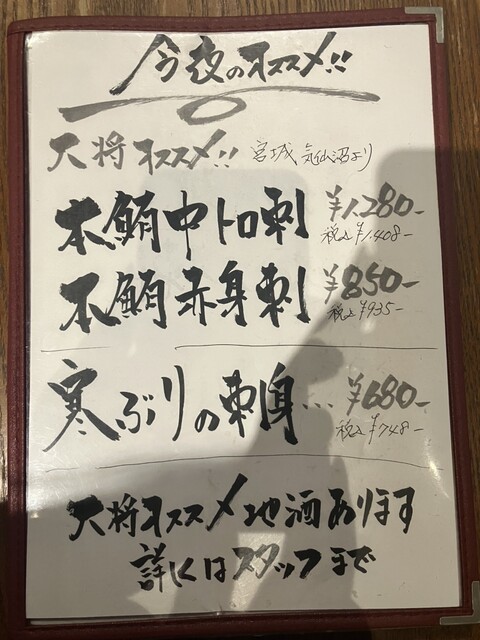 今夜のオススメ!!
大将オススメ!! 宮城 気仙沼より
本鮪中トロ刺 ¥1,280-
税込¥1,408-
本鮪赤身刺 ¥850-
税込¥935-
寒ぶりの刺身... ¥680-
税込¥748-
大将オススメ地酒あります
詳しくはスタッフまで